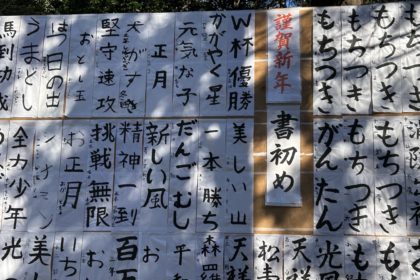 もちつき
もちつき
もちつき
もちつき
謹賀新年
書初め
W杯優勝
かがやく星
元気な子
正月
犬がすき
堅守速攻
おとし玉
はつ日の出
うまどし
馬到功成
もちつき
もちつき
がんたん
美しい山
一本勝ち
だんごむし
新しい風
精神一到
挑戦無限
お正月
全力少年
もち
もち
光風
天祥
松
天祥
森羅
千
お
百
いち
美
光